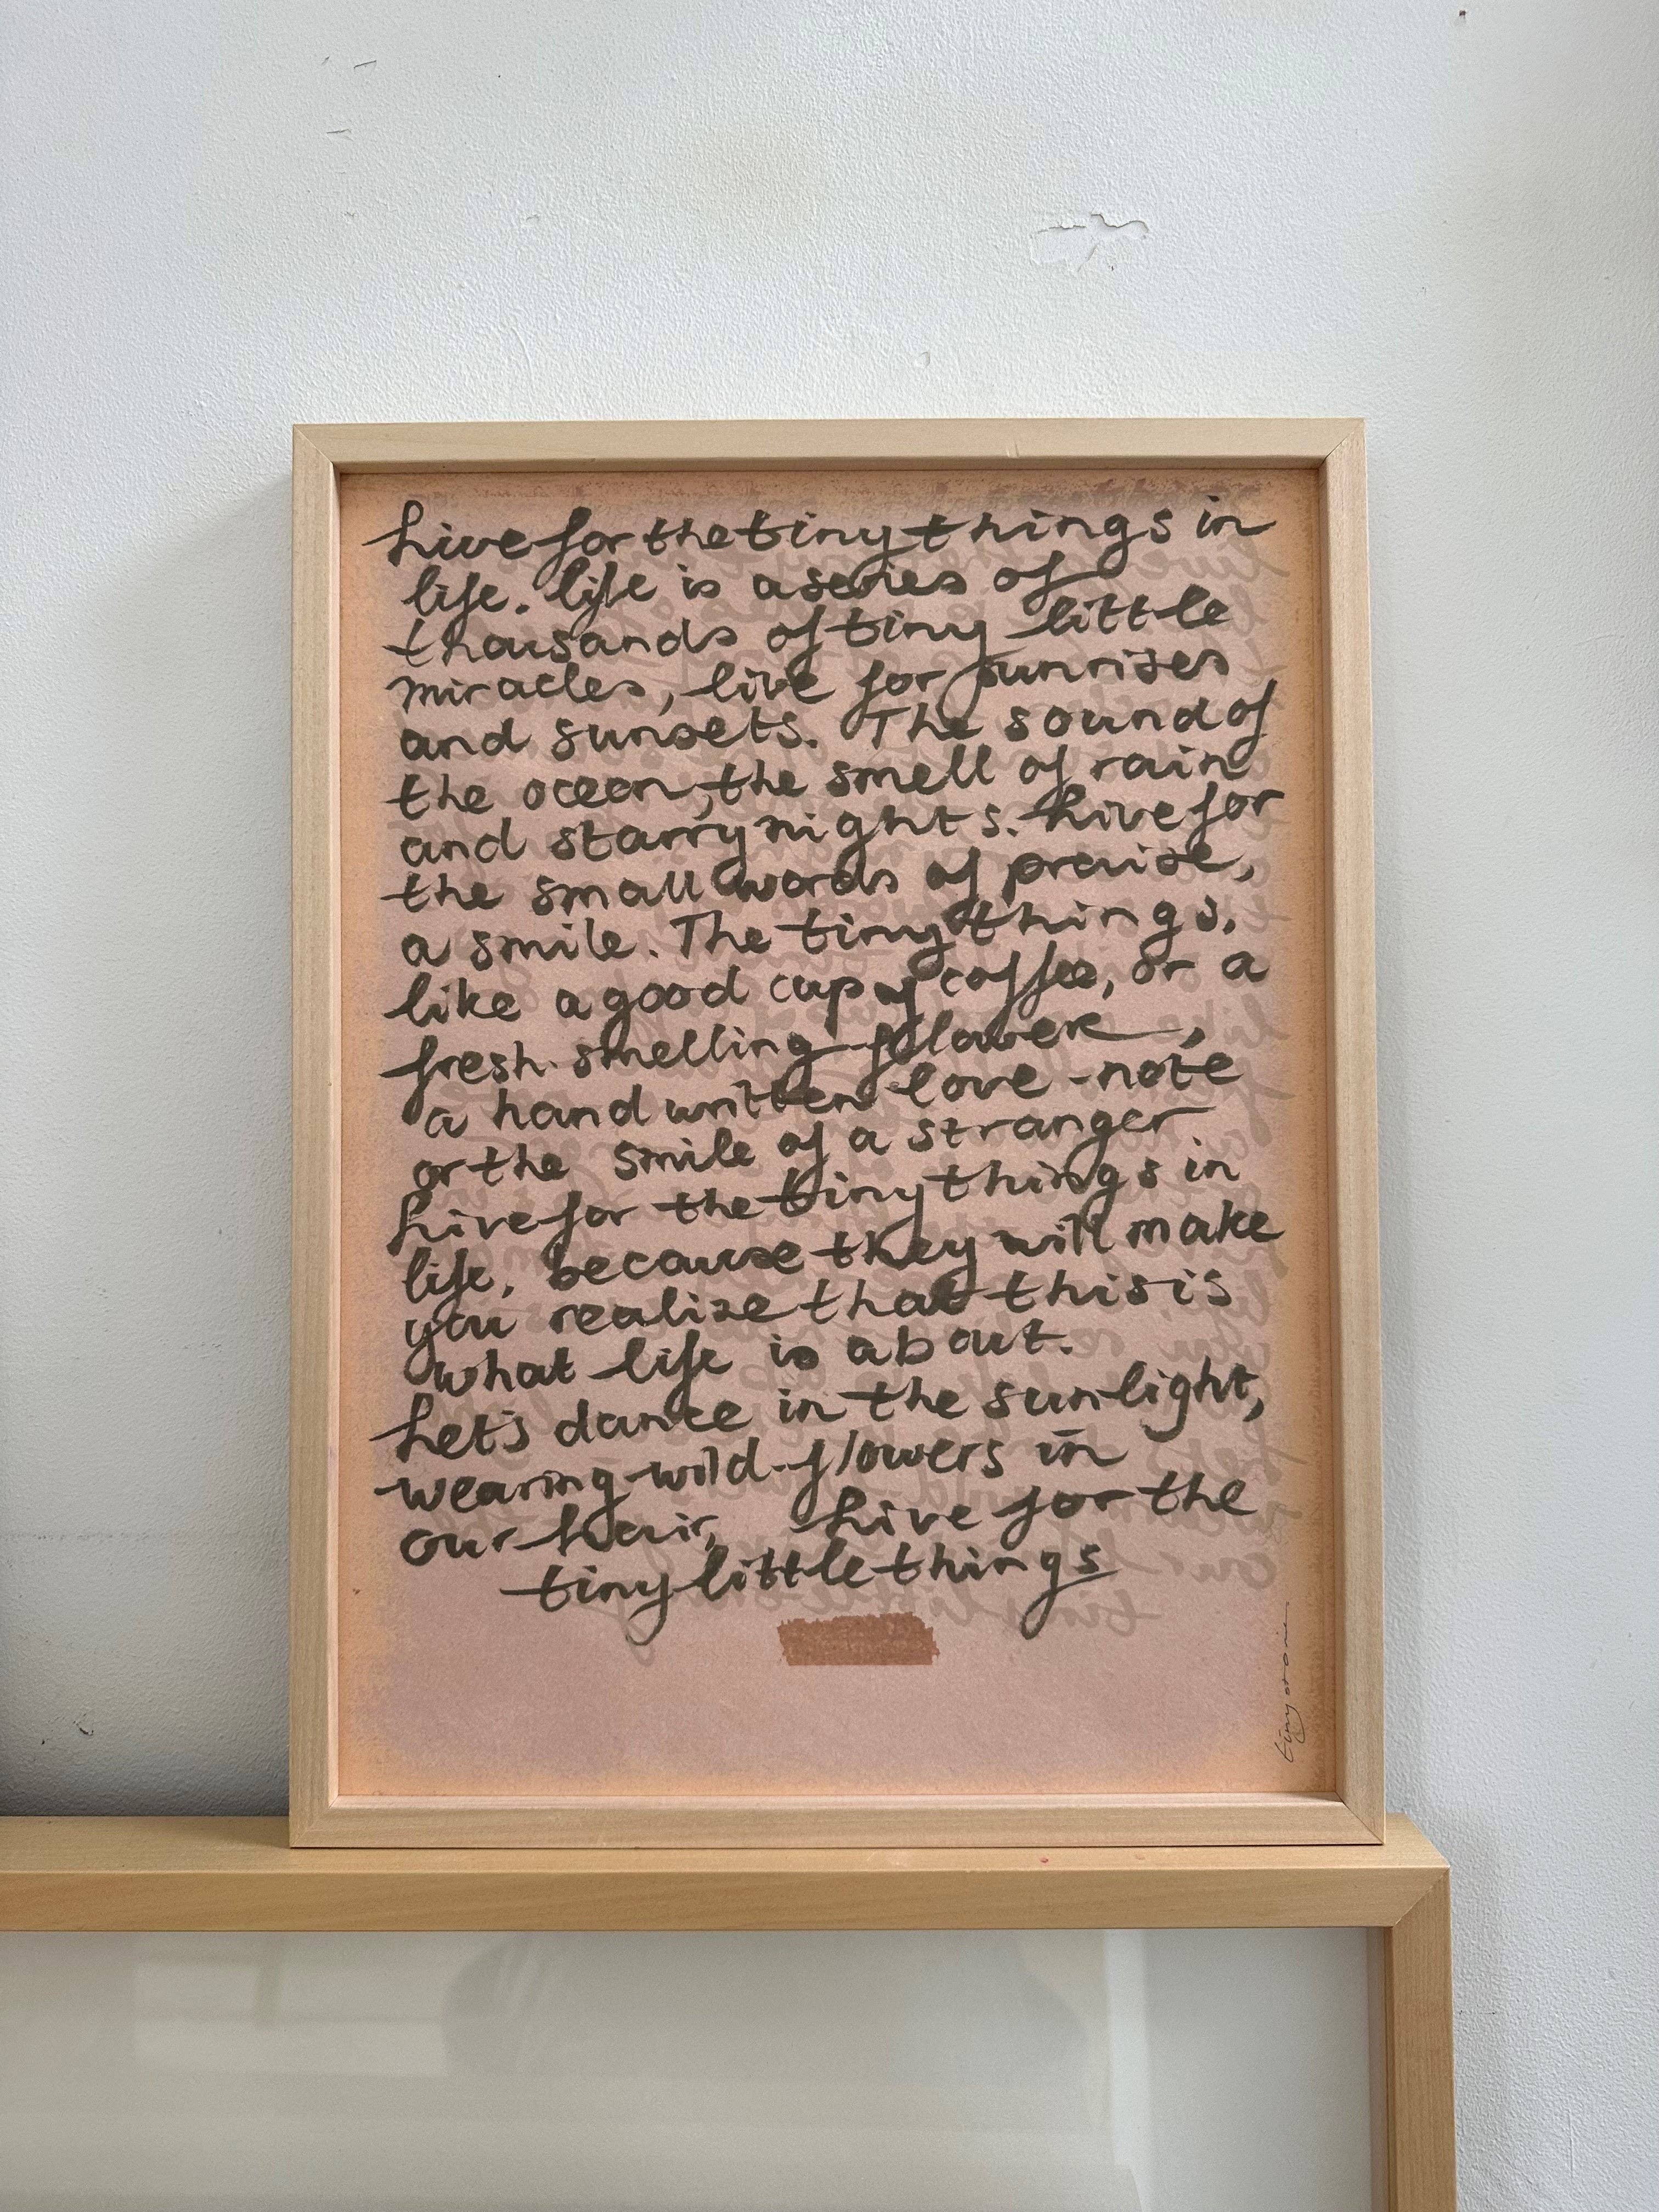 Live for the tiny things in
life. life is a series of
thousands of tiny little
miracles, live for sunrises
and sunsets. The sound of
the oceon, the smell of rain
and starry nights. Live for
the small words of praise,
a smile. The tiny things,
like a good cup of coffee, or a
fresh smelling flower,
a hand written love-note
or the smile of a stranger
Live for the tiny things in
life, because they will make
you realize that this is
what life is about.
Let's dance in the sunlight,
wearing wild-flowers in
our hair, Live for the
tiny little things